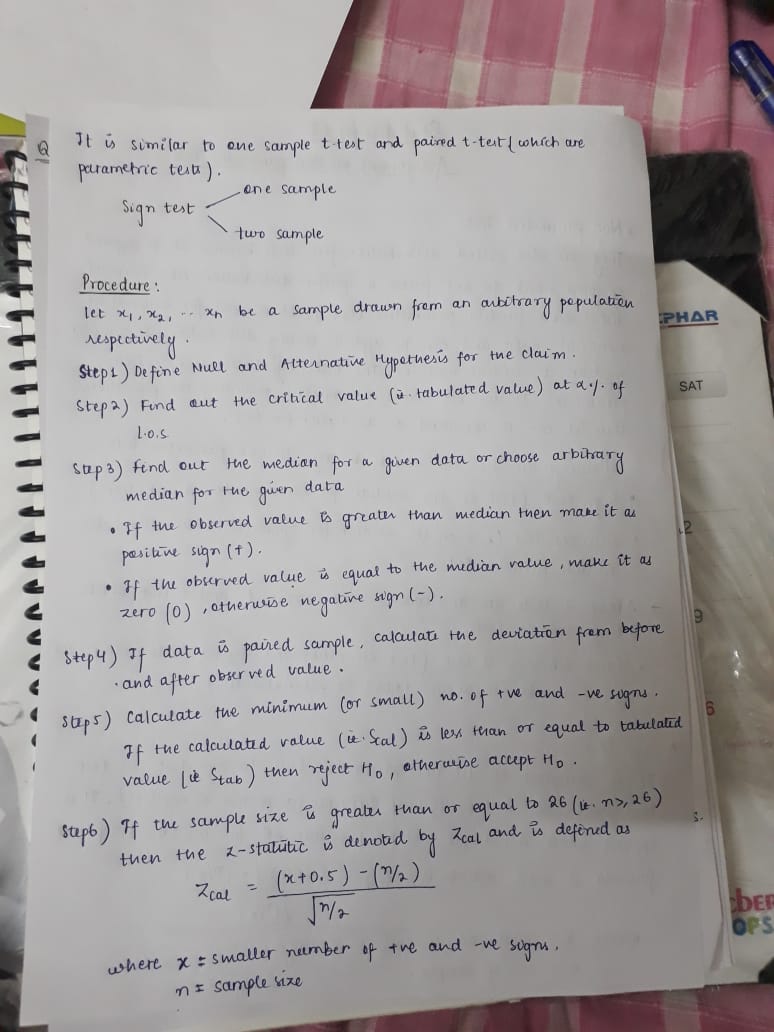 Q It is similar to one sample t-test and paired t-test (which are
parametric tests).
Sign test
one sample
two sample
Procedure:
let x₁, x₂, .. xn be a sample drawn from an arbitrary population
respectively.
Step1) Define Null and Alternative Hypothesis for the claim.
Step2) Find out the critical value (ie. tabulated value) at α% of
L.O.S
Step3) Find out the median for a given data or choose arbitrary
median for the given data
• If the observed value is greater than median then make it as
positive sign (+).
• If the observed value is equal to the median value, make it as
zero (0), otherwise negative sign (-).
Step4) If data is paired sample, calculate the deviation from before
and after observed value.
Step5) Calculate the minimum (or small) no. of +ve and -ve signs.
If the calculated value (ie. Scal) is less than or equal to tabulated
value (ie Stab) then reject H₀, otherwise accept H₀.
Step6) If the sample size is greater than or equal to 26 (ie. n≥26)
then the z-statistic is denoted by Zcal and is defined as
Zcal = (x+0.5) - (n/2) / √n/2
where x = smaller number of +ve and -ve signs.
n = sample size
EPHAR
SAT
2
9
6
CBER
OPS